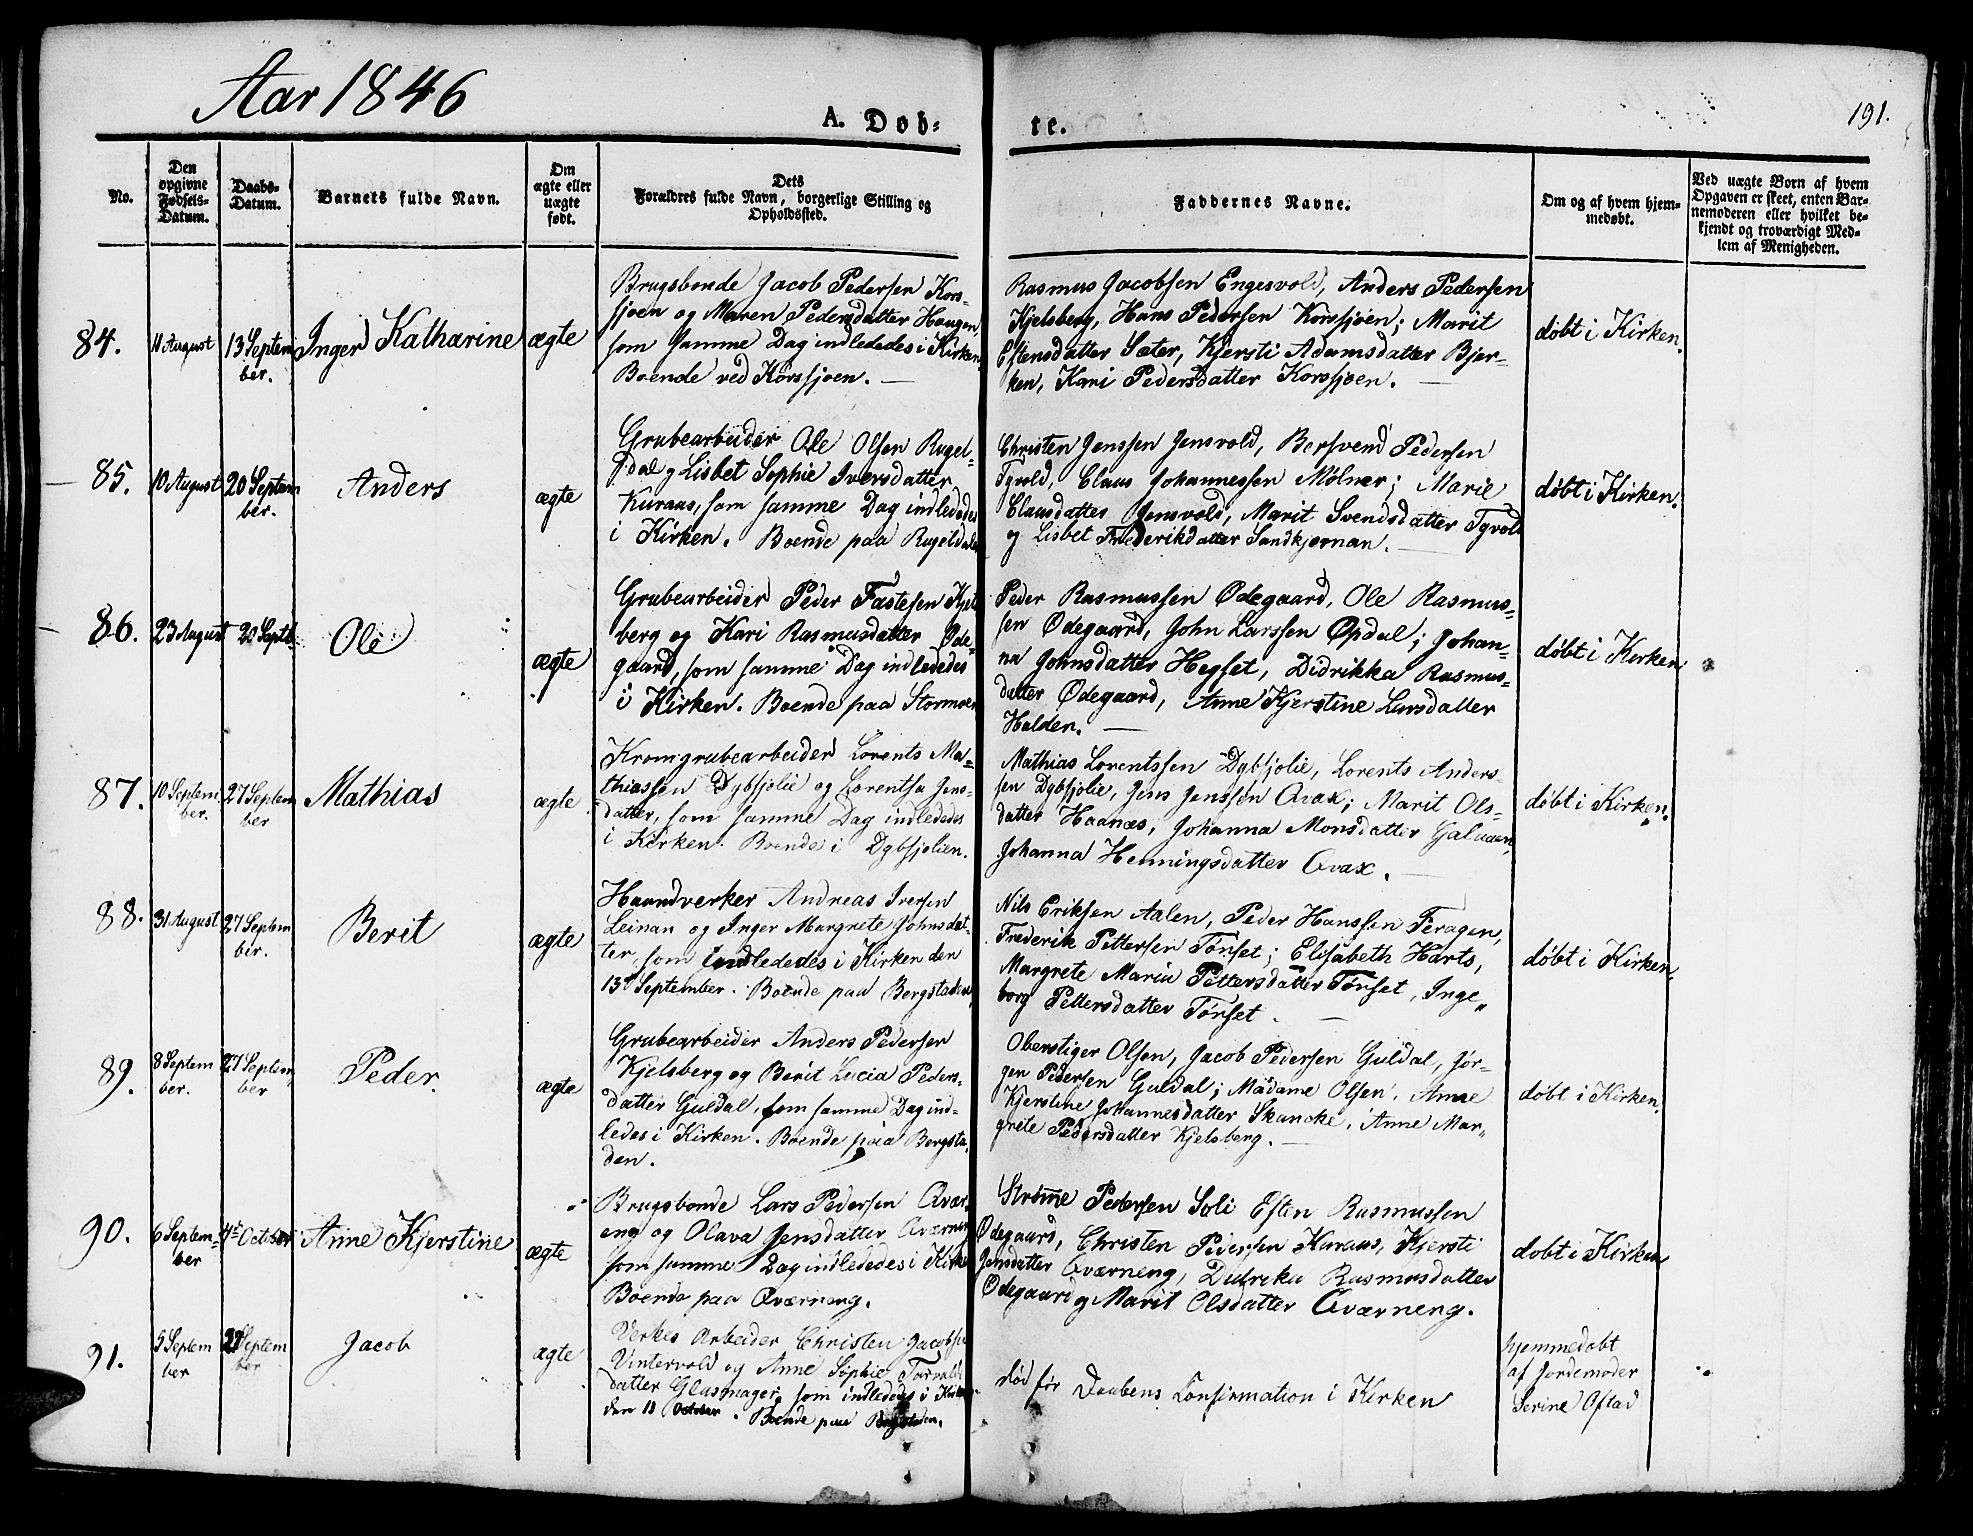 Aar 1846
A. Døb-
te.
191.
No.
Den
opgivne
Fødsels-
Datum.
Daabs-
Datum.
Barnets fulde Navn.
Om
ægte eller
uægte
født.
Dets
Forældres fulde Navn, borgerlige Stilling og
Opholdssted.
Faddernes Navne.
Om og af hvem hjem-
medøbt.
Ved uægte Born af hvem
Opgaven er skeet, enten Bar-
nemoderen eller hvilket be-
kjendt og troværdigt Med-
lem af Menigheden.
84.
11 August
13 Septem
ber.
Inger Katharine
ægte
Brugsbonde Jacob Pedersen Kors-
sjoen og Maren Pedersdatter Haugen
som samme Dag indlededes i Kirken
Boende ved Korssjoen. —
Rasmus Jacobsen Engesvold, Anders Pedersen
Kjelsberg, Hans Pedersen Korssjoen; Marit
Estensdatter Sæter, Kjersti Adamsdatter Bjer-
ken, Kari Pedersdatter Korssjoen. —
døbt i Kirken.
85.
10 August
20 Septem
ber.
Anders
ægte
Grubearbeider Ole Olsen Rugel-
dal og Lisbet Sophie Iversdatter
Kuraas, som samme Dag indlededes
i Kirken. Boende paa Rugeldalen
Christen Jenssen Jensvold, Bersvend Pedersen
Tyvold, Claus Johannessen Mølner; Marie
Clausdatter Jensvold, Marit Svendsdatter Tyvold
og Lisbet Frederikdatter Sandkjernan. —
døbt i Kirken.
86.
23 August
20 Septb.
Ole
ægte
Grubearbeider Peder Fastesen Kjels
berg og Kari Rasmusdatter Øde-
gaard, som samme Dag indlededes
i Kirken. Boende paa Stormoen
Peder Rasmussen Ødegaard, Ole Rasmus-
sen Ødegaard, John Larssen Opdal; Johan-
na Johnsdatter Hegset, Didrikka Rasmus-
datter Ødegaard, Anne Kjerstine Larsdatter
Halden. —
døbt i Kirken
87.
10 Septem
ber.
27 Septem
ber
Mathias
ægte
Kromgrubearbeider Lorents Ma-
thiassen Dybsjolie og Lorentsa Jens-
datter, som samme Dag indlededes
i Kirken. Boende i Dybsjolien.
Mathias Lorentssen Dybsjolie, Lorents Anders-
sen Dybsjolie, Jens Jenssen Qvax; Marit Ols-
datter Haanæs, Johanna Monsdatter Galaaen,
Johanna Henningsdatter Qvax. —
døbt i Kirken.
88.
31 August
27 Septem
ber.
Berit
ægte
Haandverker Andreas Iversen
Leinan og Inger Margrete Johnsdat-
ter, som indlededes i Kirken den
13 September. Boende paa Bergstaden
Nils Eriksen Aalen, Peder Hanssen Feragen,
Frederik Pettersen Tønset; Elisabeth Harts,
Margrete Maria Pettersdatter Tønset, Inge„
borg Pettersdatter Tønset. —
døbt i Kirken.
89.
8 Septem
ber.
27 Septem
ber
Peder.
ægte
Grubearbeider Anders Pedersen
Kjelsberg og Berit Lucia Peders-
datter Guldal, som samme Dag ind-
ledes i Kirken. Boende paa Bergsta-
den.
Oberstiger Olsen, Jacob Pedersen Guldal, Jør-
gen Pedersen Guldal; Madame Olsen, Anne
Kjerstine Johannesdatter Skancke, Anne Mar„
grete Pedersdatter Kjelsberg. —
døbt i Kirken.
90.
6 Septem-
ber
4de October
Anne Kjerstine
ægte
Brugsbonde Lars Pedersen Qvær
eng og Olava Jensdatter Qværneng
som samme Dag indlededes i Kirken
Boende paa Qværneng.
Strømme Pedersen Soli Esten Rasmussen
Ødegaard, Christen Pedersen Kuraas, Kjersti
Jensdatter Qværneng, Didrika Rasmusdatter
Ødegaard og Marit Olsdatter Qværneng.
døbt i Kirken
91.
5 Septem
ber
27 Septem
ber
Jacob
ægte
Verkes Arbeider Christen Jacobsen
Vintervold og Anne Sophie Torvalds
datter Glasmager, som indledes i Kirken
den 11 October. Boende paa Bergstaden.
død før Daabens Confirmation i Kirken
hjemmedøbt
af Jordemoder
Serine Oftad